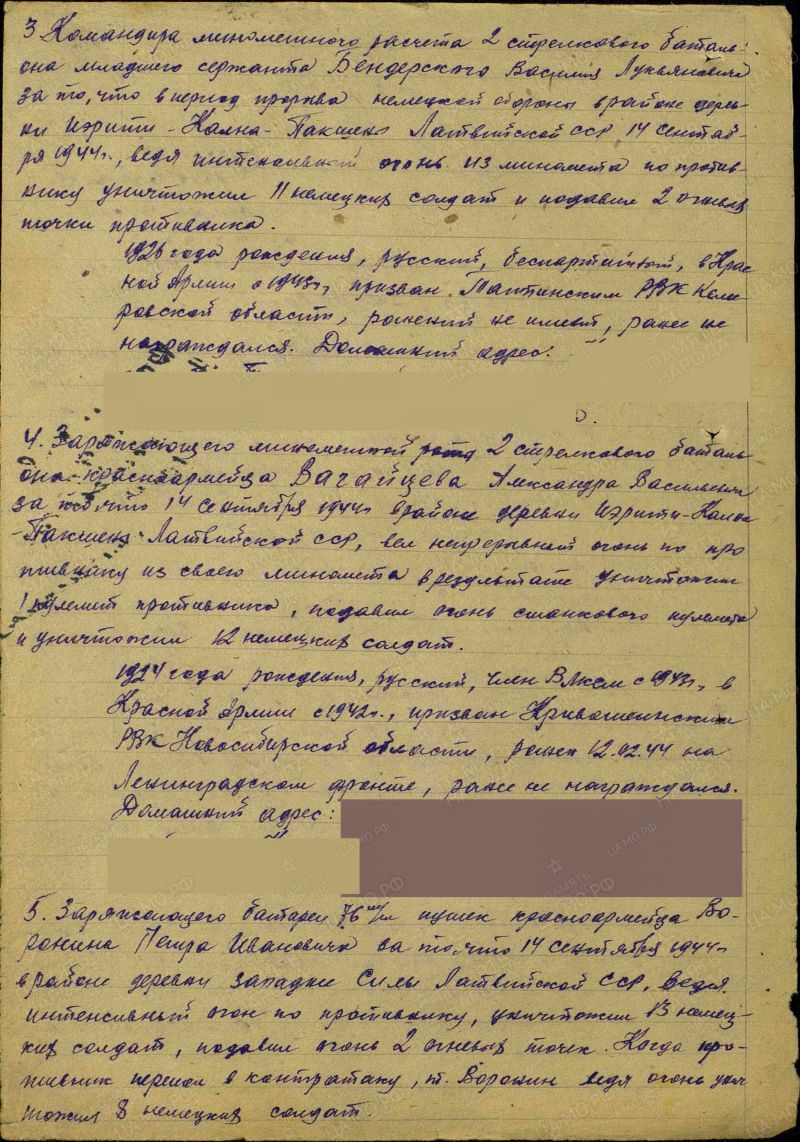 3 Командира минометного расчета 2 стрелкового баталь-
она младшего сержанта Бендерского Василия Лукьяновича
за то, что в период прорыва немецкой обороны в районе дерев-
ни Иэрити-Кална-Пакшен Латвийской ССР 14 сентяб-
ря 1944г., ведя интенсивный огонь из миномета по против-
нику уничтожил 11 немецких солдат и подавил 2 огневых
точки противника.
1926 года рождения, русский, беспартийный, в Крас-
ной Армии с 1943г., призван РВК Кеме-
ровской области, ранений не имеет, ранее не
награждался. Домашний адрес:
4. Заряжающего минометной роты 2 стрелкового баталь-
она красноармейца Вагайцева Александра Васильевича
за то, что 14 сентября 1944г в районе деревни Иэрити-Калн
-Пакшен Латвийской ССР, вел непрерывный огонь по про-
тивнику из своего миномета в результате уничтожил
1 пулемет противника, подавил огонь станкового пулемета
и уничтожил 12 немецких солдат.
1924 года рождения, русский, член ВЛКСМ с 1943г., в
Красной Армии с 1942г., призван Кривошеинским
РВК Новосибирской области, ранен 12.02.44 на
Ленинградском фронте, ранее не награждался.
Домашний адрес:
5. Заряжающего батареи 76 м/м пушек красноармейца Во-
ронина Петра Ивановича за то, что 14 сентября 1944г
в районе деревни западнее Силы Латвийской ССР, ведя
интенсивный огон по противнику, уничтожил 13 немец-
ких солдат, подавил огонь 2 огневых точек. Когда про-
тивник перешел в контратаку, т. Воронин ведя огонь унич
тожил 8 немецких солдат.